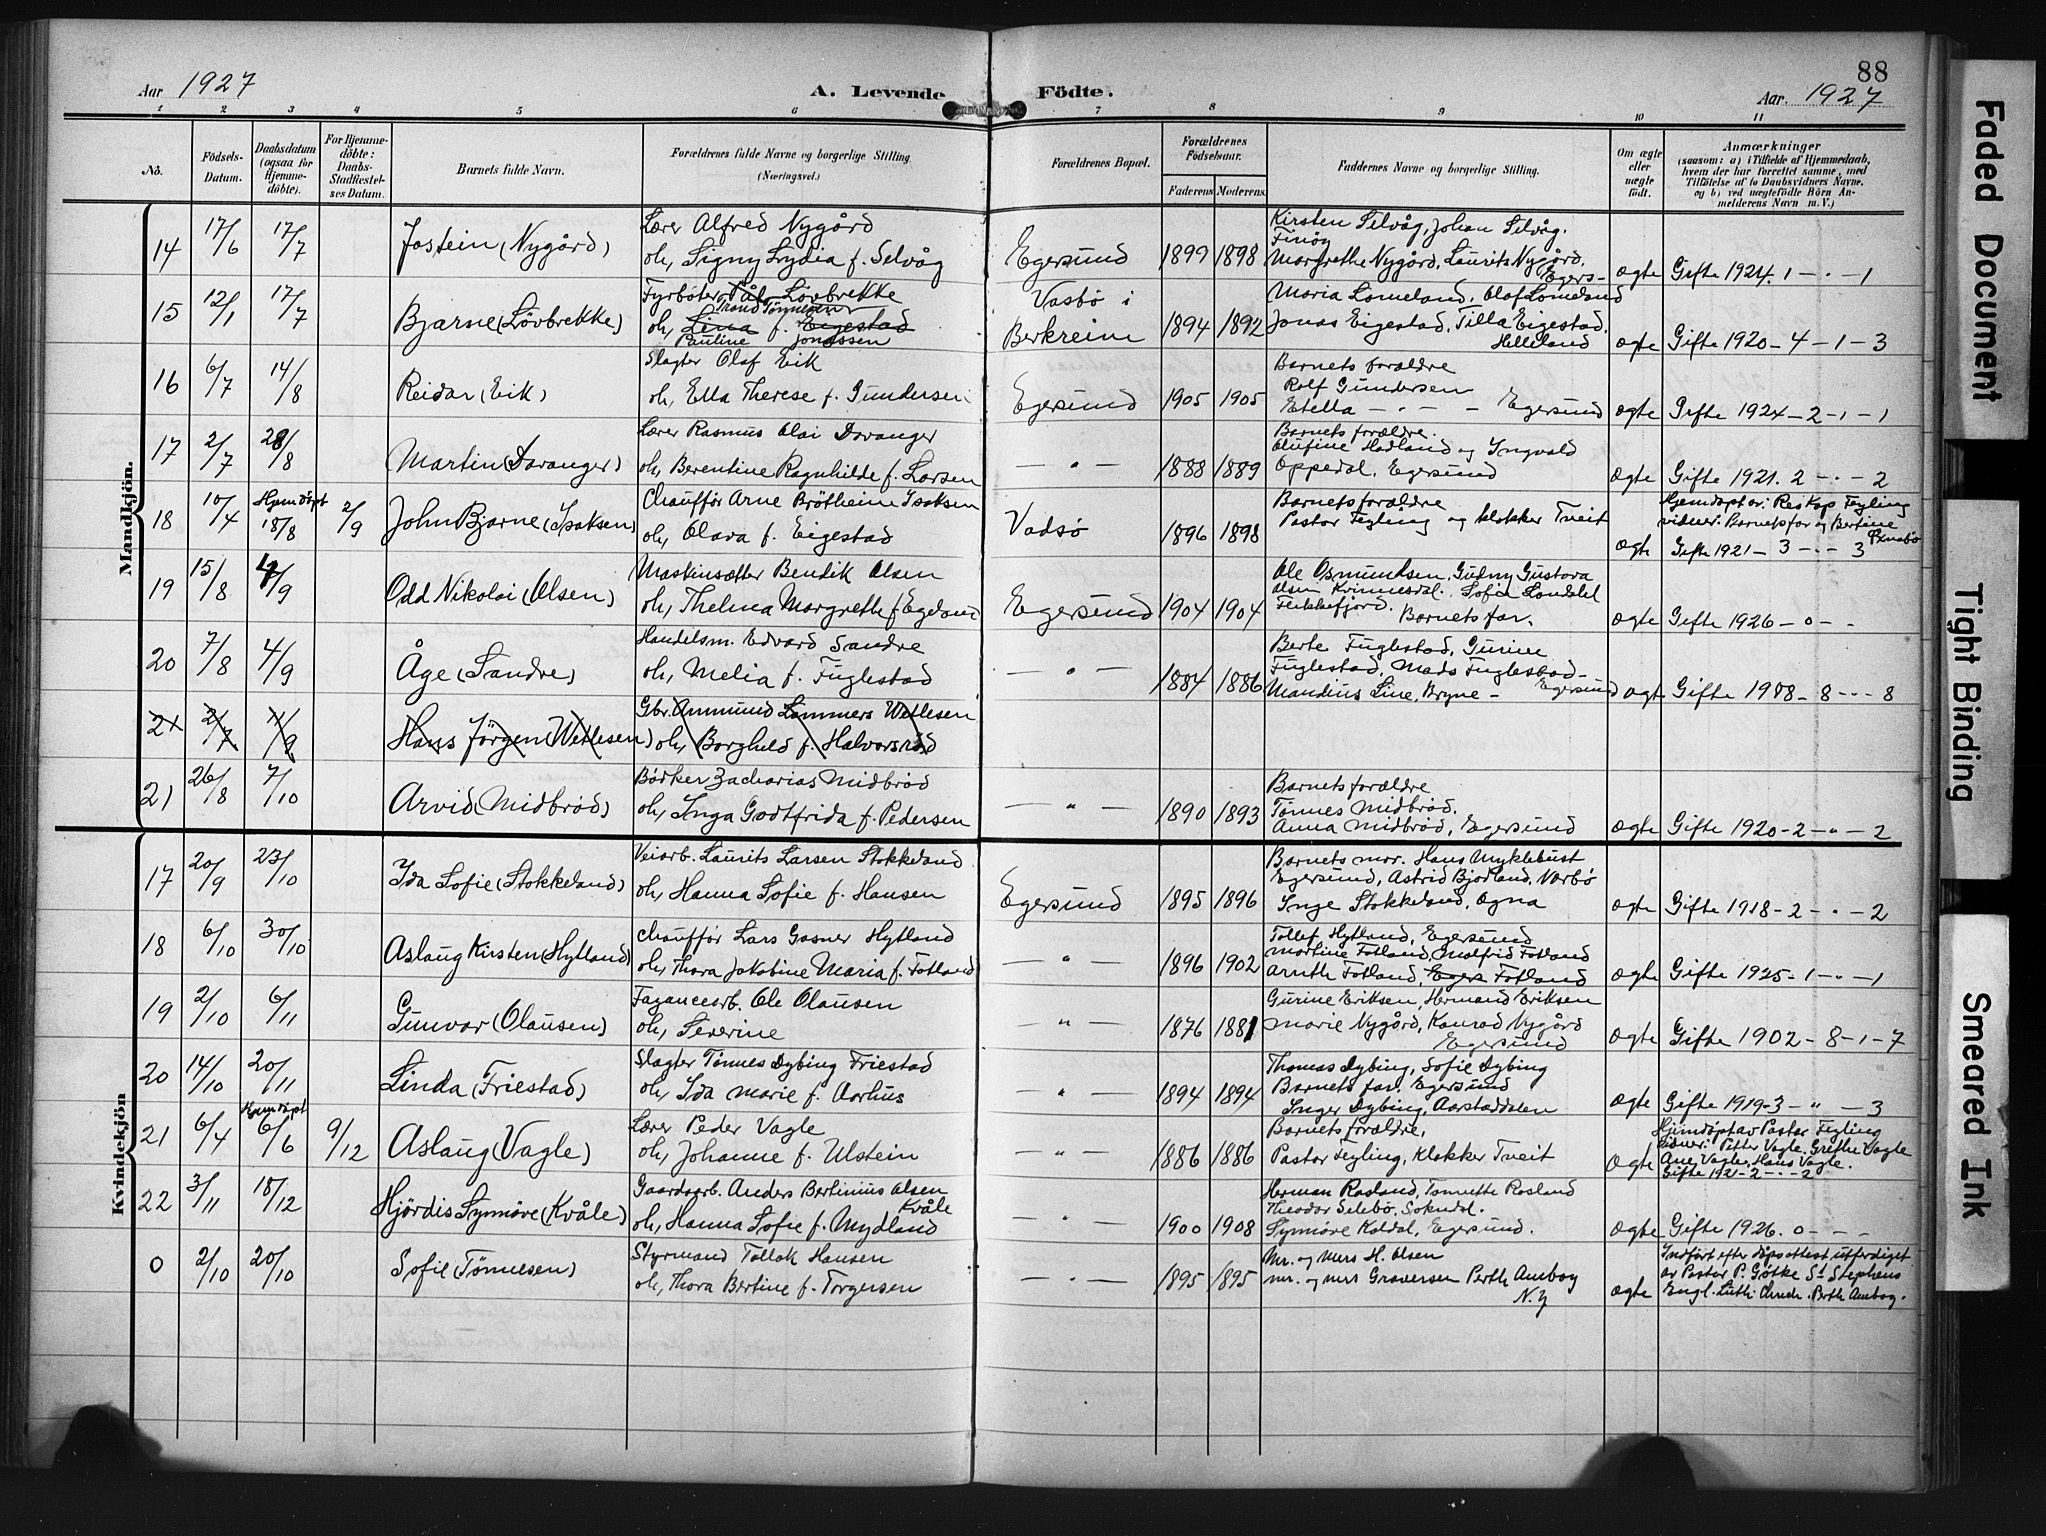 88
Aar 1927
A. Levende Födte.
Aar. 1927
1 2 3 4 5 6 7 8 9 10 11
No.
Födsels-Datum.
Daabsdatum (ogsaa for Hjemme-döbte).
For Hjemme-döbte: Daabs-Stadfæstel-ses Datum.
Barnets fulde Navn.
Forældrenes fulde Navne og borgerlige Stilling. (Næringsvei.)
Forældrenes Bopæl.
Forældrenes Födselsaar.
Faderens. Moderens.
Faddernes Navne og borgerlige Stilling.
Om ægte eller uægte født.
Anmærkninger
(saasom: a) i Tilfælde af Hjemmedaab,
hvem der har forrettet samme, med
Tilföielse af to Daabsvidners Navne,
og b) ved uægtefödte Börn An-
melderens Navn m. V.)
Mandkjön.
14 17/6 17/7 Jostein (Nygård)
Lærer Alfred Nygård
oh, Signy Lydia f. Selvåg
Egersund 1899 1898
Kirsten Selvåg, Johan Selvåg.
Finöy
Margrethe Nygård, Laurits Nygård,
Egers-
ægte Gifte 1924. 1 - " - 1
15 12/1 17/7 Bjarne (Lövbrekke)
Fyrbøter Pål Lövbrekke
Trand Tønnesen
oh, Lina f. Eigestad
Pauline Jonassen
Vasbö i
Berkreim 1894 1892
Maria Lomeland, Olaf Lomeland
Jonas Eigestad, Tilla Eigestad.
Helleland
ægte Gifte 1920 - 4 - 1 - 3
16 6/7 14/8 Reidar (Eik)
Slagter Olaf Eik
oh, Ella Therese f. Gundersen
Egersund 1905 1905
Barnets forældre
Rolf Gundersen
Etella - " - - Egersund
ægte Gifte 1924 - 2 - 1 - 1
17 2/7 28/8 Martin (Davanger)
Lærer Rasmus Olai Davanger
oh, Berentine Ragnhilde f. Larsen
- " - 1888 1889
Barnets forældre.
Olufine Hadland og Yngvald
Oppedal, Egersund
ægte Gifte 1921. 2 - " - 2
18 10/4 Hjemdöpt 18/8 2/9 John Bjarne (Isaksen)
Chauffør Arne Brötheim Isaksen
oh, Olava f. Eigestad
Vadsø 1896 1898
Barnets forældre
Pastor Fegling og klokker Tveit
Hjemdöpt av: Res Kap Fegling
vidner: Barnets far og Bertine
ægte Gifte 1921 - 3 - " - 3
19 15/8 4/9 Odd Nikolai (Olsen)
Maskinsætter Bendik Olsen
oh, Thelma Margrethe f. Egeland
Egersund 1904 1904
Ole Osmundsen, Gudny Gustava
Olsen Kvinnesdal. Sofie Londal
Fekkefjord. Barnets far.
ægte Gifte 1926 - 0 - -
20 7/8 4/9 Åge (Sandre)
Handelsm. Edvard Sandre
oh, Melia f. Fuglestad
- " - 1884 1886
Berte Fuglestad, Gurine
Fuglestad, Mads Fuglestad -
Mandius Line, Bryne - Egersund
ægte Gifte 1908 - 8 - " - 8
21 2/7 11/9 Hans Jörgen (Wetlesen)
Gbr. Ammund Lammers Wetlesen
oh, Borghild f. Halvorsröd
21 26/8 7/10 Arvid (Midbrød)
Bødker Zacharias Midbrød
oh, Inga Godtfrida f. Pedersen
- " - 1890 1893
Barnets forældre
Tønnes Midbrød.
Anna Midbrød, Egersund
ægte Gifte 1920 - 2 - " - 2
Kvindekjön
17 20/9 23/10 Ida Sofie (Stokkeland)
Veiarb. Laurits Larsen Stokkeland
oh, Hanna Sofie f. Hansen
Egersund 1895 1896
Barnets mor. Hans Myklebust
Egersund, Astrid Bjorland, Varbö
Inge Stokkeland, Ogna
ægte Gifte 1918 - 2 - " - 2
18 6/10 30/10 Aslaug Kirsten (Hytland)
Chauffør Lars Gasner Hytland
oh, Thora Jakobine Maria f. Fotland
- " - 1896 1902
Tollef Hytland, Egersund
Martine Fotland, Malfrid Fotland
Arnth Fotland, Egers Fotland
ægte Gifte 1925 - 1 - " - 1
19 2/10 6/11 Gunvor (Olausen)
Fayancearb. Ole Olausen
oh, Severine
- " - 1876 1881
Gurine Eriksen, Hermand Eriksen
Marie Nygård, Konrad Nygård
Egersund
ægte Gifte 1902 - 8 - 1 - 7
20 14/10 20/11 Linda (Friestad)
Slagter Tønnes Dybing Friestad
oh, Ida Marie f. Aarhus
- " - 1894 1894
Thomas Dybing, Sofie Dybing
Barnets far. Egersund
Inger Dybing, Aarstaddalen
ægte Gifte 1919 - 3 - " - 3
21 6/4 Hjemdöpt 6/6 9/12 Aslaug (Vagle)
Lærer Peder Vagle
oh, Johanne f. Ulstein
- " - 1886 1886
Barnets forældre.
Pastor Fegling, Klokker Tveit
Hjemdöpt av Pastor Fegling
vidner: Petter Vagle. Grethe Vagle
Ane Vagle, Hans Vagle.
ægte Gifte 1921 - 2 - " - 2
22 3/11 18/12 Hjördis Synnöve (Kvåle)
Gaardsarb. Anders Bertinius Olsen
Kvåle
oh, Hanna Sofie f. Mydland
- " - 1900 1908
Herman Rosland, Tomette Rosland
Theodor Selebö, Sokndal.
Synnöve Koldal, Egersund.
ægte Gifte 1926. 0 - - -
0 2/10 20/10 Sofie (Tönnesen)
Styrmand Tollak Hansen
oh, Thora Bertine f. Torgersen
- " - 1895 1895
Mr. og Mrs H. Olsen
Mr. og Mrs Graversen Perth Amboy
N. Y
Indfört efter döpsattest utferdiget
av Pastor P. Götke St Stephens
ægte Engl. Luth. Church. Perth Amboy.
Faded Document
Tight Binding
Smeared Ink